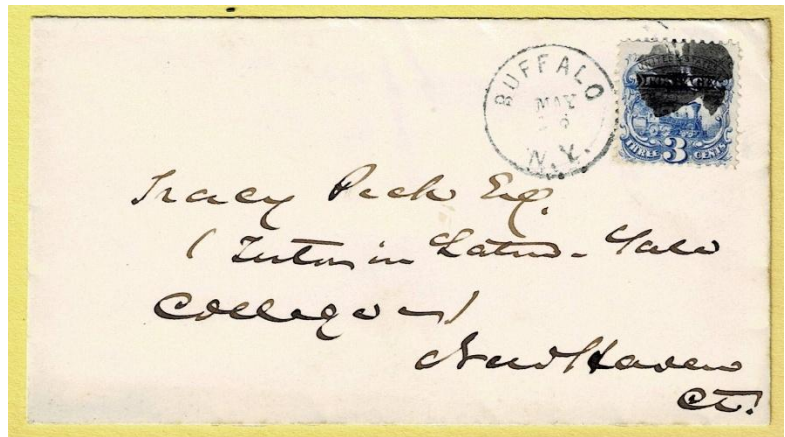 BUFFALO
MAY
N.Y.
THREE 3 CENTS
Tracy Peck Esq.
(Tutor in Latin - Yale
College)
New Haven
Ct.